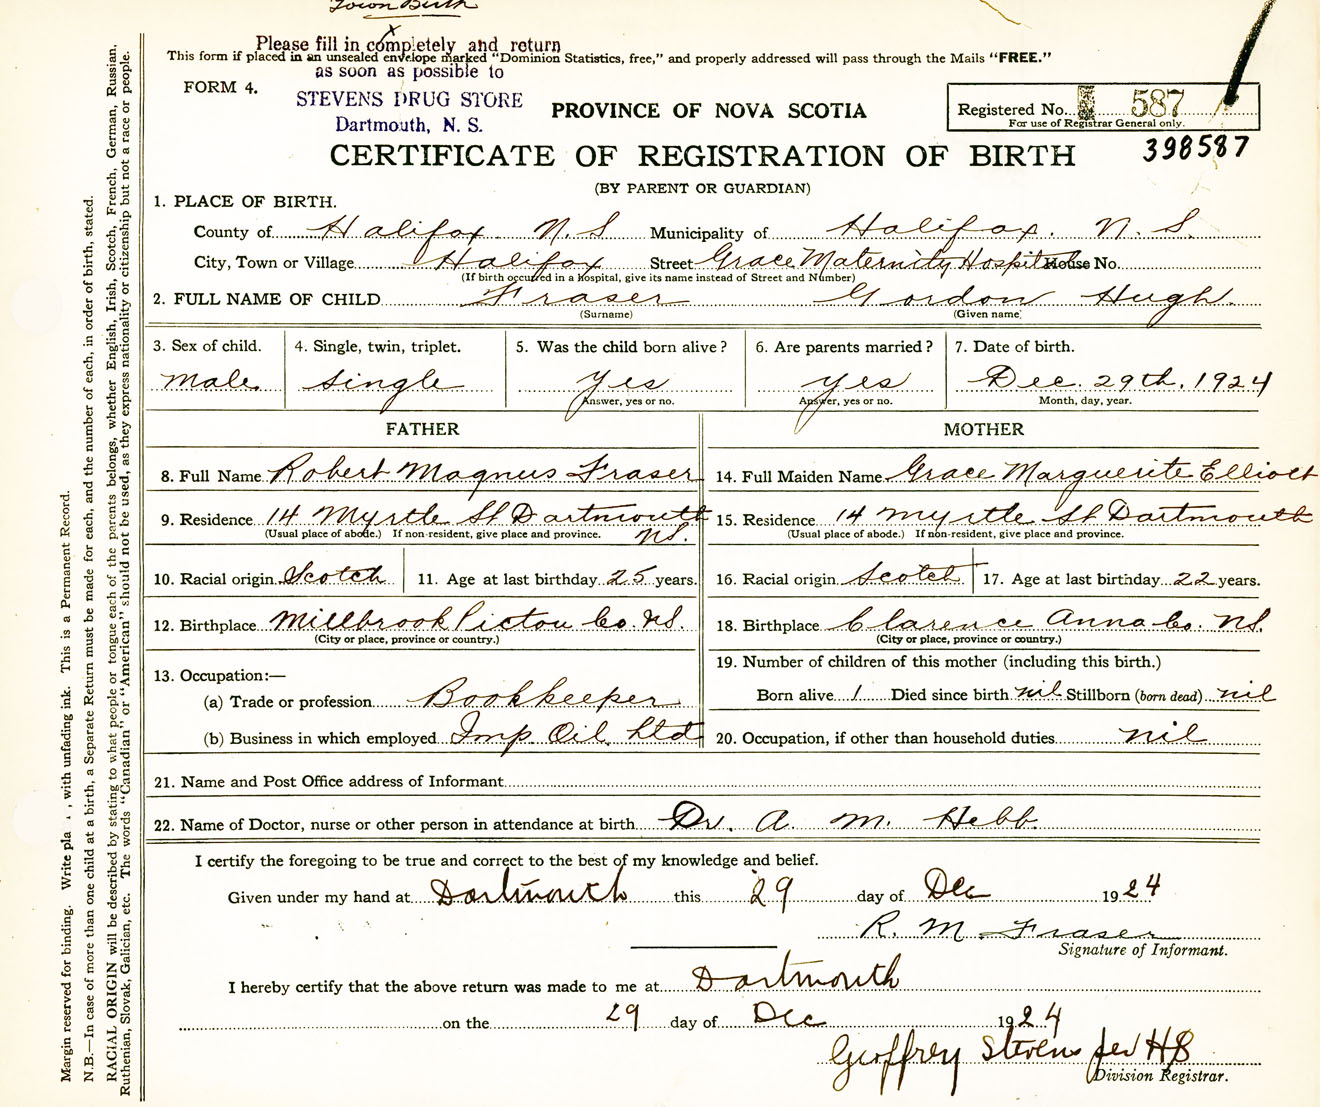 Town Birth
Please fill in completely and return
This form if placed in an unsealed envelope marked "Dominion Statistics, free," and properly addressed will pass through the Mails "FREE."
as soon as possible to
FORM 4.
STEVENS DRUG STORE
Dartmouth, N. S.
PROVINCE OF NOVA SCOTIA
Registered No. 587
For use of Registrar General only.
398587
CERTIFICATE OF REGISTRATION OF BIRTH
(BY PARENT OR GUARDIAN)
1. PLACE OF BIRTH.
County of Halifax N. S Municipality of Halifax. N. S.
City, Town or Village Halifax Street Grace Maternity Hospital House No.
(If birth occured in a hospital, give its name instead of Street and Number)
2. FULL NAME OF CHILD Fraser Gordon Hugh.
(Surname) (Given name)
3. Sex of child. 4. Single, twin, triplet. 5. Was the child born alive? 6. Are parents married? 7. Date of birth.
male. single yes yes Dec. 29th, 1924
Answer, yes or no. Answer, yes or no. Month, day, year.
FATHER MOTHER
8. Full Name Robert Magnus Fraser 14. Full Maiden Name Grace Marguerite Elliott
9. Residence 14 Myrtle St Dartmouth 15. Residence 14 Myrtle St Dartmouth
(Usual place of abode.) If non-resident, give place and province. NS. (Usual place of abode.) If non-resident, give place and province.
10. Racial origin Scotch 11. Age at last birthday 25 years. 16. Racial origin Scotch 17. Age at last birthday 22 years.
12. Birthplace Millbrook Pictou Co. NS. 18. Birthplace Clarence Anna Co. NS.
(City or place, province or country.) (City or place, province or country.)
13. Occupation:— 19. Number of children of this mother (including this birth.)
(a) Trade or profession Bookkeeper Born alive 1 Died since birth nil Stillborn (born dead) nil
(b) Business in which employed Imp. Oil, Ltd 20. Occupation, if other than household duties nil
21. Name and Post Office address of Informant
22. Name of Doctor, nurse or other person in attendance at birth Dr. A. M. Hebb.
I certify the foregoing to be true and correct to the best of my knowledge and belief.
Given under my hand at Dartmouth this 29 day of Dec 1924
R. M. Fraser
Signature of Informant.
I hereby certify that the above return was made to me at Dartmouth
on the 29 day of Dec 1924
Geoffrey Stevens per HB
Division Registrar.
Margin reserved for binding. Write pla , with unfading ink. This is a Permanent Record.
N.B.—In case of more than one child at a birth, a Separate Return must be made for each, and the number of each, in order of birth, stated.
RACIAL ORIGIN will be described by stating to what people or tongue each of the parents belongs, whether English, Irish, Scotch, French, German, Russian,
Ruthenian, Slovak, Galician, etc. The words "Canadian" or "American" should not be used, as they express nationality or citizenship but not a race or people.